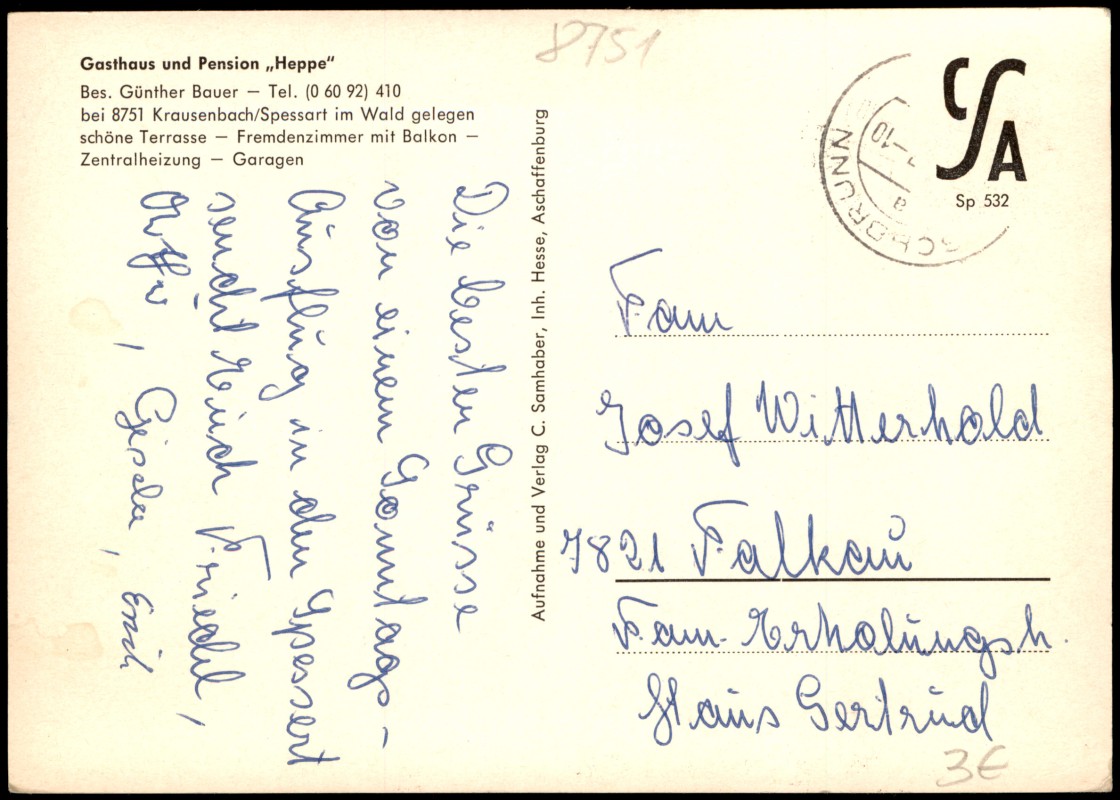 8751
Gasthaus und Pension „Heppe“
Bes. Günther Bauer – Tel. (0 60 92) 410
bei 8751 Krausenbach/Spessart im Wald gelegen
schöne Terrasse – Fremdenzimmer mit Balkon –
Zentralheizung – Garagen
Die besten Grüsse
von einem Sonntags-
Ausflug in den Spessart
sendet Euch Friedel,
Gisela, Erich
Aufnahme und Verlag C. Samhaber, Inh. Hesse, Aschaffenburg
CSA
Sp 532
-10
a
Fam
Josef Witterhold
7821 Falkau
Fam-Erholungsh.
Haus Gertrud
3€